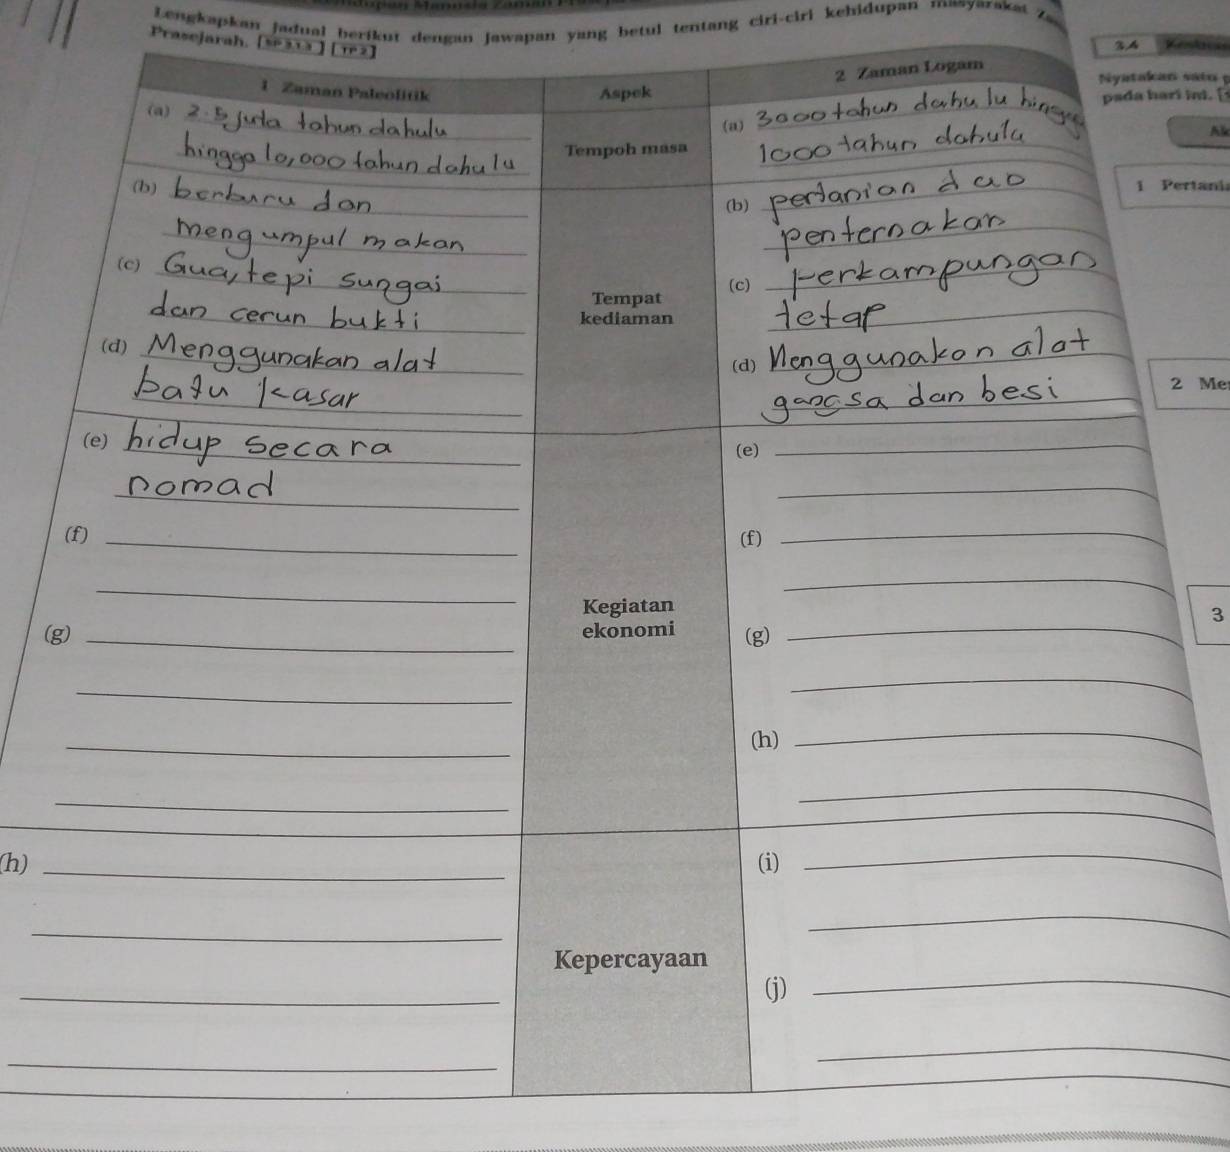 Lengkapkan jadual berikut dengan jawapan yang betul tentang ciri-ciri kehidupan masyarakat
Prasejarah. [SP 3.1.3] [TP 2]
1 Zaman Paleolitik
Aspek
2 Zaman Logam
(a) 2.5 juta tahun dahulu
hingga 10,000 tahun dahulu
Tempoh masa
(a) 3000 tahun dahulu hingga
1000 tahun dahulu
(b) berburu dan
mengumpul makan
(c) Gua, tepi sungai
dan cerun bukti
(d) Menggunakan alat
batu kasar
Tempat
kediaman
(b) pertanian dao
penternakan
(c) Perkampungan
tetap
(d) Menggunakan alat
gangsa dan besi
(e) hidup secara
nomad
(f)
(g)
Kegiatan
ekonomi
(e)
(f)
(g)
(h)
(h)
Kepercayaan
(i)
(j)
3.4
Nyatakan satu
pada hari ini.
1 Pertani
2 Me
3